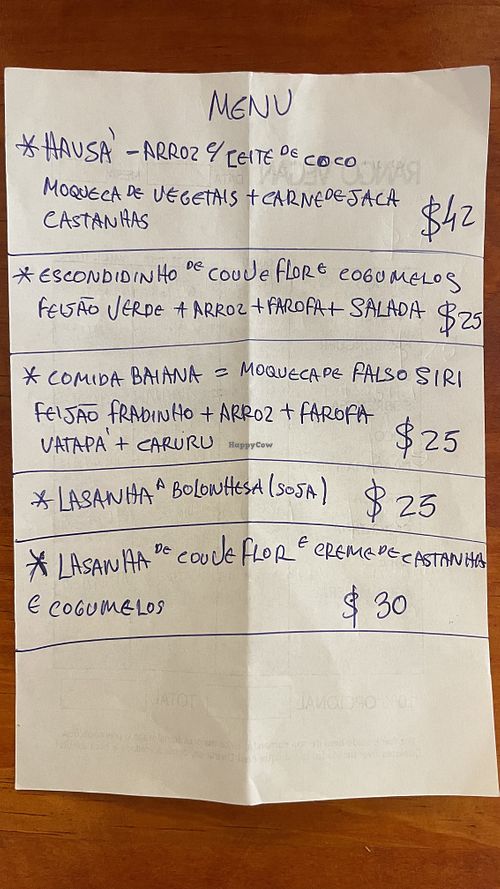 MENU
* HAUSÁ - ARROZ C/ LEITE DE COCO
MOQUECA DE VEGETAIS + CARNE DE JACA
CASTANHAS $42
* ESCONDIDINHO DE COUVE FLOR E COGUMELOS
FEIJÃO VERDE + ARROZ + FAROFA + SALADA $25
* COMIDA BAIANA = MOQUECA DE FALSO SIRI
FEIJÃO FRADINHO + ARROZ + FAROFA
VATAPÁ + CARURU $25
HappyCow
* LASANHA A BOLONHESA (SOJA) $25
* LASANHA DE COUVE FLOR E CREME DE CASTANHA
E COGUMELOS $30
RANGO VEGAN
10% OPCIONAL
TOTAL